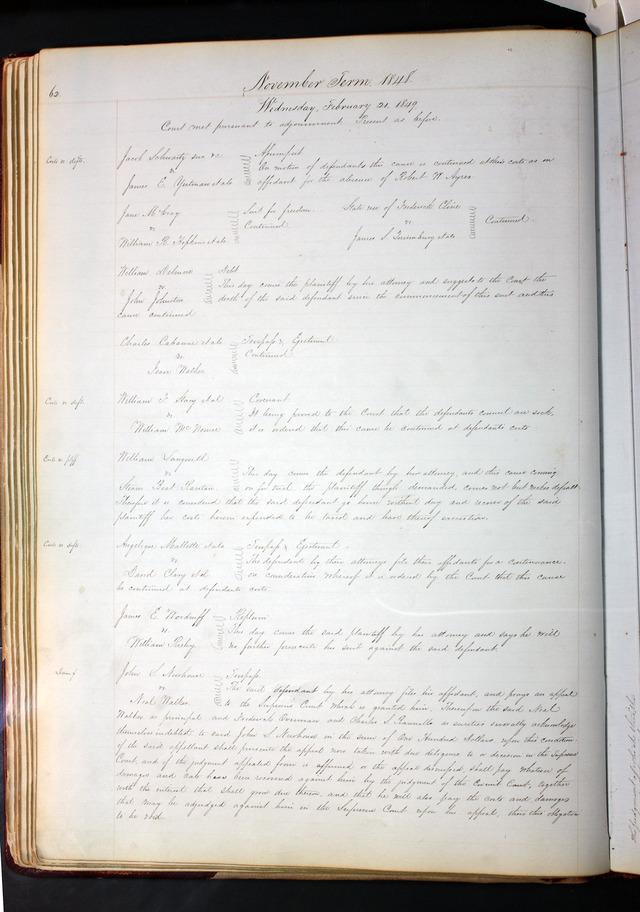 62
November Term 1848
Wednesday, February 21. 1849.
Court met pursuant to adjournment. Present as before.
Costs vs defts.
Jacob Schwartz use &c
vs
James E. Yeatman et als
Assumpsit
On motion of defendants this cause is continued at their costs as on
affidavit for the absence of Robert N. Ayres
Jane McCray
vs
William R. Hopkins et als
Suit for freedom.
Continued
State use of Frederick Cline
vs
James S. et als
Continued.
William Milburn
vs
John Johnston
Debt
This day came the plaintiff by his attorney and suggests to the Court the
death of the said defendant since the commencement of this suit and this
cause continued
Charles Cabanne et als
vs
Isaac Walker
Trespass & Ejectment
Continued
Costs vs deft.
William T. Hary et al
vs
William McNowne
Covenant
It being proved to the Court that the defendants counsel are sick,
it is ordered that this cause be continued at defendants costs
Costs vs plff
William Langwith
vs
Steam Boat
This day comes the defendant by her attorney, and this cause coming
on for trial, the plaintiff though demanded, comes not but makes default
Therefore it is considered that the said defendant go hence without day and recover of the said
plaintiff her costs herein expended to be taxed and have thereof execution.
Costs vs defts.
Angelique Mallette et als
vs
David Clary et al
Trespass & Ejectment
The defendants by their attorneys file their affidavits for a continuance.
on consideration whereof it is ordered by the Court that this cause
be continued at defendants costs.
James E. Woodruff
vs
William Risley
Replevin
This day came the said plaintiff by his attorney and says he will
no further prosecute his suit against the said defendant
John S. Newhouse
vs
Neal Walker
Trespass
The said defendant by his attorney files his affidavit, and prays an appeal
to the Supreme Court which is granted him. Whereupon the said Neal
Walker as principal and Frederick Overman and Charles S. as sureties severally acknowledge
themselves indebted to said John S. Newhouse in the sum of One Hundred Dollars, upon this condition:
if the said appellant shall prosecute the appeal now taken with due diligence to a decision in the Supreme
Court, and if the judgment appealed from is affirmed or the appeal dismissed, shall pay whatever of
damages and costs have been recovered against him by the judgment of the Circuit Court, together
with the interest that shall grow due thereon, and that he will also pay the costs and damages
that may be adjudged against him in the Supreme Court upon his appeal, then this obligation
to be void.